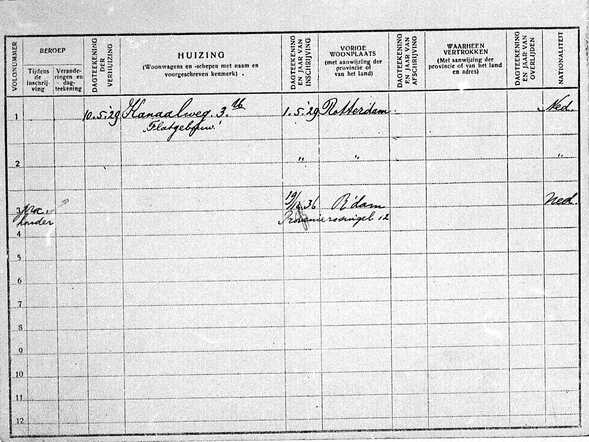 VOLGNUMMER
BEROEP
Tijdens de inschrijving
Veranderingen en dagteekening
DAGTEEKENING DER VERHUIZING
HUIZING
(Woonwagens en -schepen met naam en
voorgeschreven kenmerk)
DAGTEEKENING EN JAAR VAN INSCHRIJVING
VORIGE
WOONPLAATS
(met aanwijzing der
provincie of
van het land)
DAGTEEKENING EN JAAR VAN AFSCHRIJVING
WAARHEEN
VERTROKKEN
(Met aanwijzing der
provincie of van het land
en adres)
DAGTEEKENING EN JAAR VAN OVERLIJDEN
NATIONALITEIT
1 10.5.'29 Kanaalweg. 3. 1.5.'29 Rotterdam. Ned.
"Flatgebouw"
2 " " "
3 36 R'dam Ned.
12
4
5
6
7
8
9
10
11
12